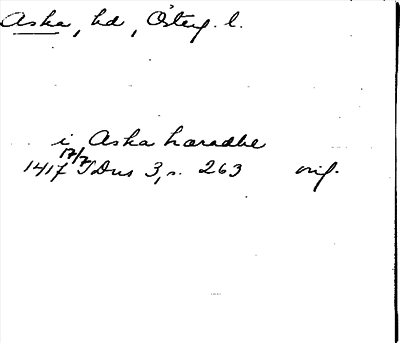 Aska, hd, Österg. l.
i Aska haradhe
1417 17/7 SDns 3, s. 263 orig.